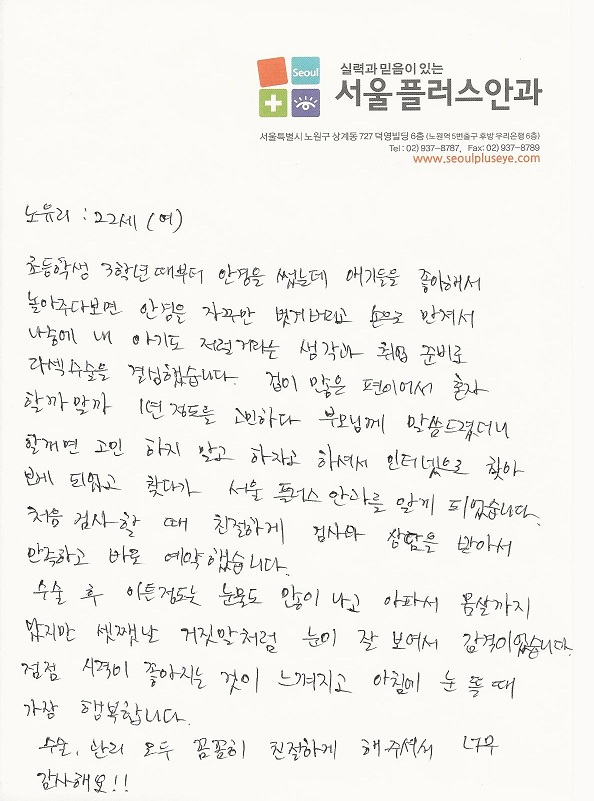 Seoul
실력과 믿음이 있는
서울플러스안과
서울특별시 노원구 상계동 727 덕영빌딩 6층 (노원역 5번출구 후방 우리은행 6층)
Tel : 02) 937-8787, Fax: 02) 937-8789
www.seoulpluseye.com
노유리 : 22세 (여)
초등학생 3학년때부터 안경을 썼는데 애기들을 좋아해서
놀아주다보면 안경을 자꾸만 벗겨버리고 손으로 만져서
나중에 내 아기도 저럴거라는 생각과 취업 준비로
라섹수술을 결심했습니다. 겁이 많은 편이어서 혼자
할까말까 1년 정도를 고민하다 부모님께 말씀드렸더니
할꺼면 고민 하지 말고 하자고 하셔서 인터넷으로 찾아
보게 되었고 찾다가 서울 플러스 안과를 알게 되었습니다.
처음 검사할 때 친절하게 검사와 상담을 받아서
만족하고 바로 예약했습니다.
수술 후 이튿정도는 눈물도 많이 나고 아파서 몸살까지
났지만 셋쨋날 거짓말처럼 눈이 잘 보여서 감격이었습니다.
점점 시력이 좋아지는 것이 느껴지고 아침에 눈 뜰 때
가장 행복합니다.
수술, 관리 모두 꼼꼼히 친절하게 해주셔서 너무
감사해요!!